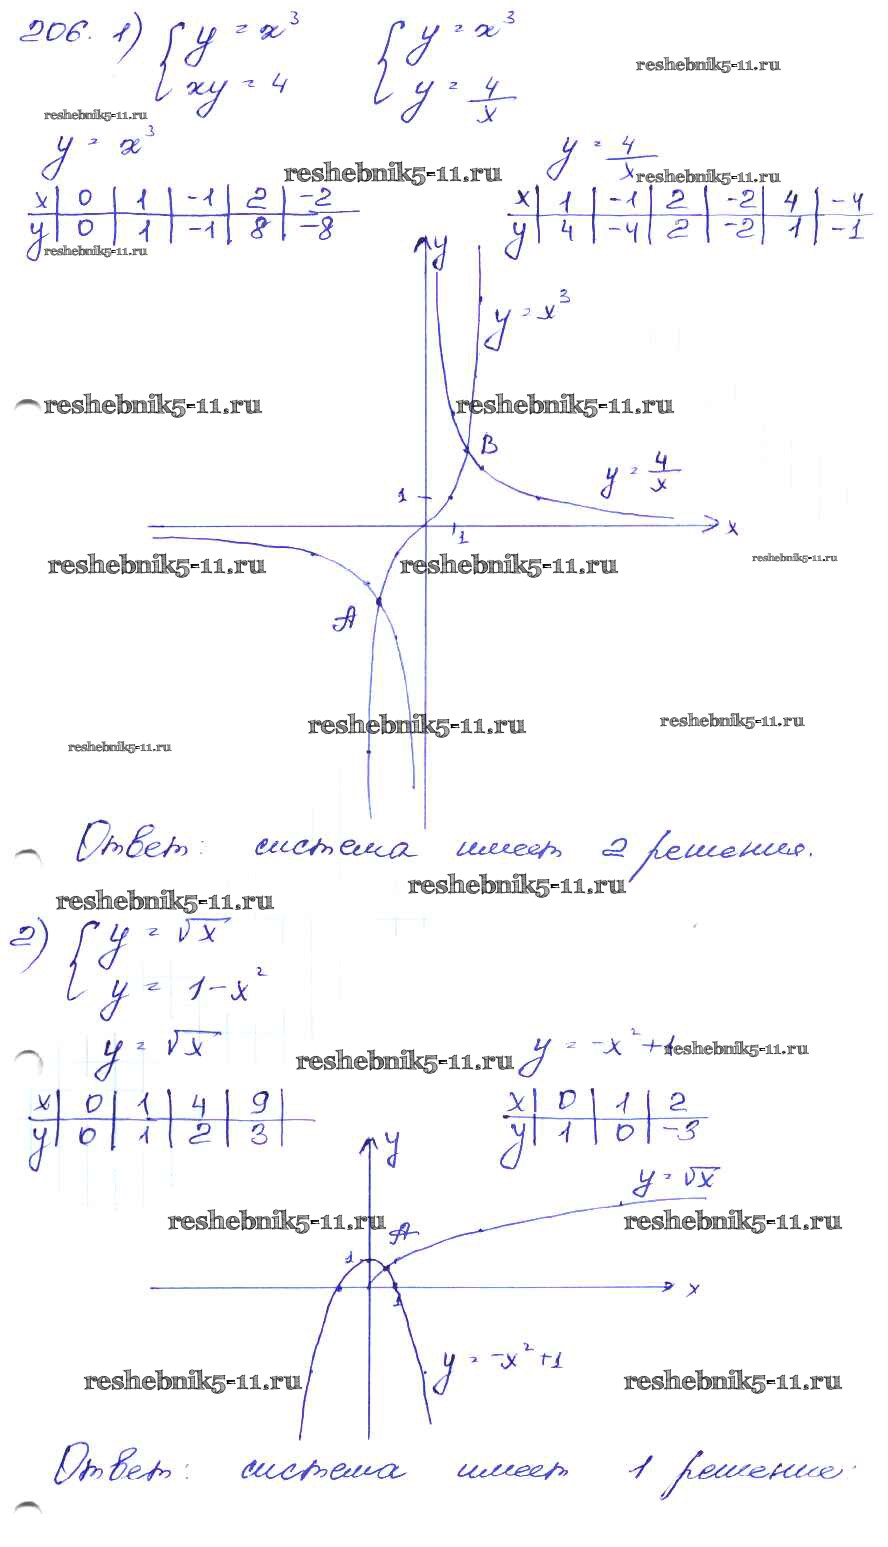 206. 1) { y = x³ { y = x³
xy = 4 y = 4/x
reshebnik5-11.ru
reshebnik5-11.ru
y = x³ y = 4/x
reshebnik5-11.ru
reshebnik5-11.ru
x | 0 | 1 | -1 | 2 | -2 x | 1 | -1 | 2 | -2 | 4 | -4
y | 0 | 1 | -1 | 8 | -8 y | 4 | -4 | 2 | -2 | 1 | -1
reshebnik5-11.ru
y
y = x³
reshebnik5-11.ru
reshebnik5-11.ru
B
y = 4/x
1
x
1
reshebnik5-11.ru
reshebnik5-11.ru
reshebnik5-11.ru
A
reshebnik5-11.ru
reshebnik5-11.ru
reshebnik5-11.ru
Ответ: система имеет 2 решения.
reshebnik5-11.ru
reshebnik5-11.ru
2) { y = √x
y = 1-x²
y = √x y = -x² + 1
reshebnik5-11.ru
reshebnik5-11.ru
x | 0 | 1 | 4 | 9 | x | 0 | 1 | 2
y | 0 | 1 | 2 | 3 | y | 1 | 0 | -3
y
y = √x
reshebnik5-11.ru
reshebnik5-11.ru
A
1
x
1
y = -x² + 1
reshebnik5-11.ru
reshebnik5-11.ru
Ответ: система имеет 1 решение.